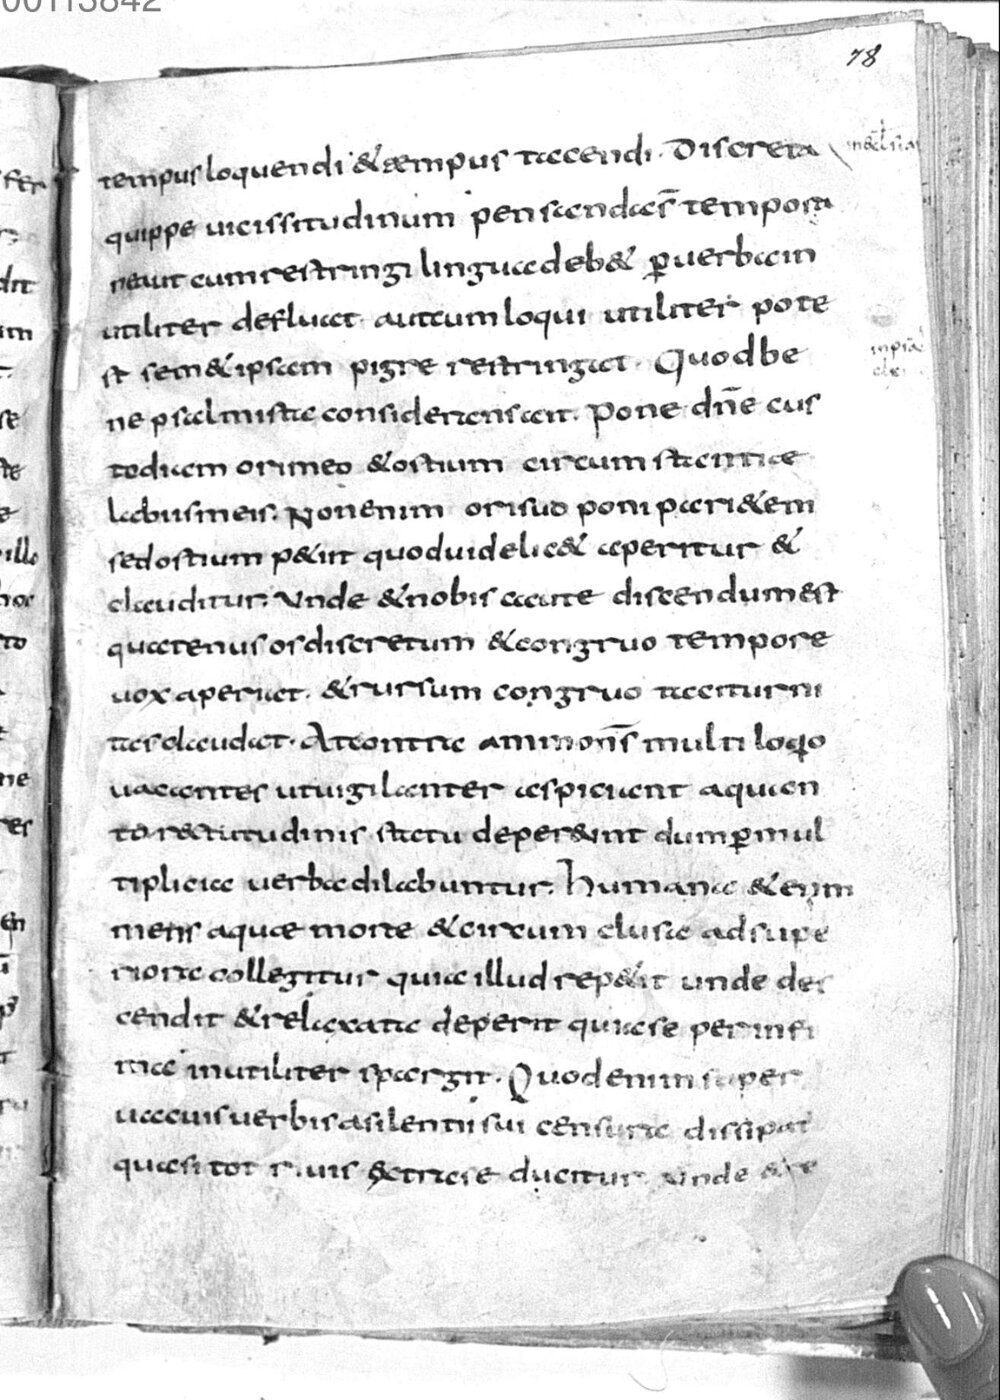 00113842
78
tempus loquendi & tempus tacendi. Discreta
quippe uicissitudinum pensandas̄ tempora
ne aut cum restringi lingua deb& p̱ uerba in
utiliter defluat. aut cum loqui utiliter pote
st sem&ipsam pigre restringat. Quod be
ne psalmista considerans ait. Pone dn̄e cus
todiam ori meo &ostium circumstantiae
labiis meis. Non enim ori suo poni pari&em
sed ostium p&iit quod uidelic& aperitur &
clauditur. Unde &nobis caute discendum est
quatenus os discretum &congruo tempore
uox aperiat. &rursum congruo taciturni
tas claudat. At contra ammonn̄s multiloq̇o
uacantes ut uigilanter aspiciant a quan
to rectitudinis statu deper&unt dum p̱ mul
tiplicia uerba dilabuntur. Humana &enim
mens aquae morte &circum clusa ad supe
riora collegitur quia illud rep&it unde des
cendit &relaxata deperit quia se per infi
ma inutiliter spargit. Quod enim super
uacuis uerbis a silentii sui censura dissipat
quasi tot riuis &ctra se ducitur. Unde &re